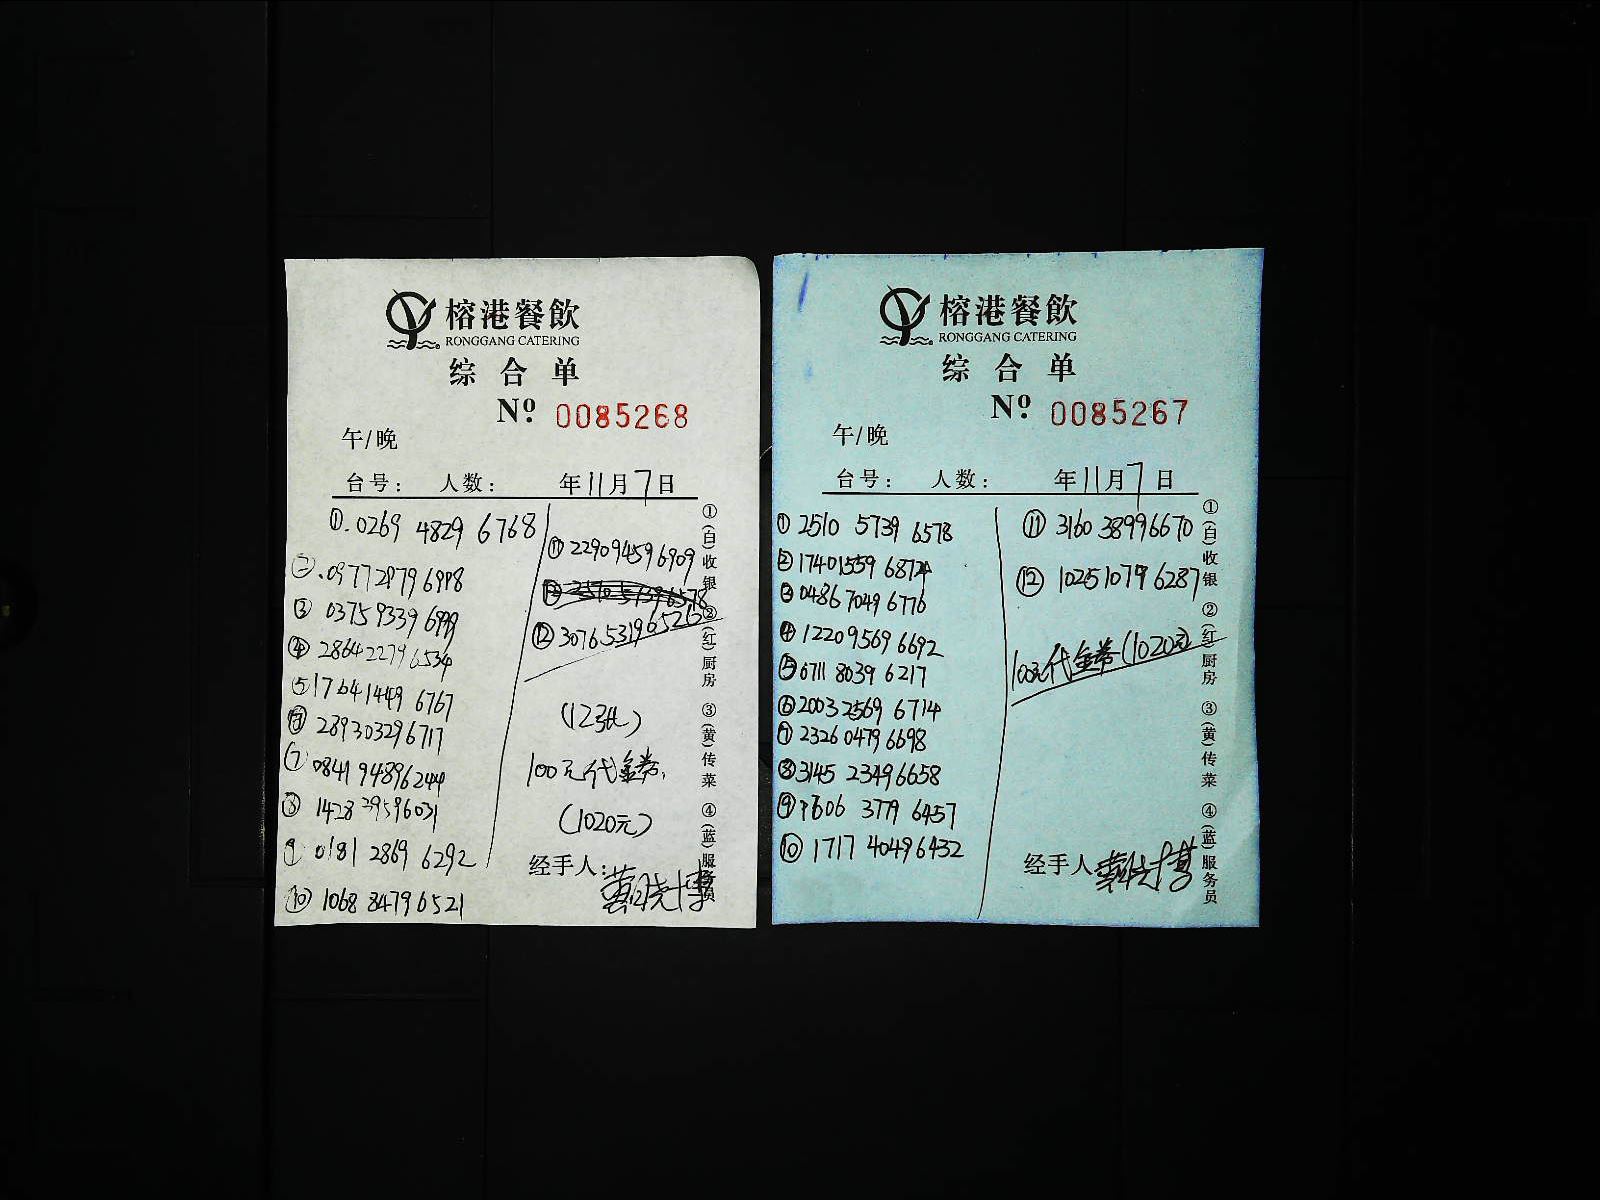 榕港餐飲
RONGGANG CATERING
综合单
Nº 0085268
午/晚
台号： 人数： 年11月7日
①.0269 4829 6768
②.0977 2879 6998
③ 0375 9339 6999
④ 2864 2279 6534
⑤ 1764 1449 6767
⑥ 2893 0329 6717
⑦ 0841 9489 6244
⑧ 1428 3959 6031
⑨ 0181 2869 6292
⑩ 1068 8479 6521
⑪ 2290 9459 6909
⑫ 3076 5319 6526
(12张)
100元代金券,
(1020元)
经手人:
①(白)收银 ②(红)厨房 ③(黄)传菜 ④(蓝)服务员
榕港餐飲
RONGGANG CATERING
综合单
Nº 0085267
午/晚
台号： 人数： 年11月7日
① 2510 5739 6578
② 1740 1559 6874
③ 0486 7049 6776
④ 1220 9569 6692
⑤ 6711 8039 6217
⑥ 2003 2569 6714
⑦ 2326 0479 6698
⑧ 3145 2349 6658
⑨ 7606 3779 6457
⑩ 1717 4049 6432
⑪ 3160 3899 6670
⑫ 1025 1079 6287
100元代金券(1020元)
经手人
①(白)收银 ②(红)厨房 ③(黄)传菜 ④(蓝)服务员